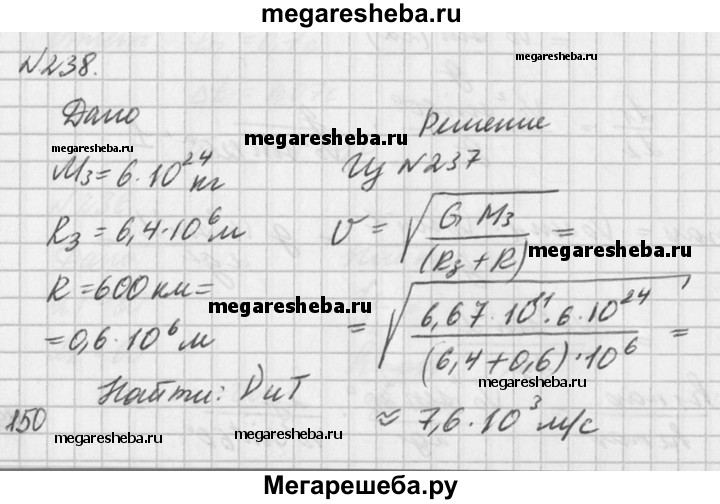 megaresheba.ru
№238.
Дано
Решение
megaresheba.ru
megaresheba.ru
M₃ = 6·10²⁴ кг
Из №237
R₃ = 6,4·10⁶ м
υ = √(G M₃ / (R₃ + R)) =
megaresheba.ru
R = 600 км =
megaresheba.ru
= 0,6·10⁶ м
= √(6,67·10¹¹·6·10²⁴ / (6,4+0,6)·10⁶) =
megaresheba.ru
Найти: υ и T
≈ 7,6·10³ м/с
150
megaresheba.ru
megaresheba.ru
Мегарешеба.ру